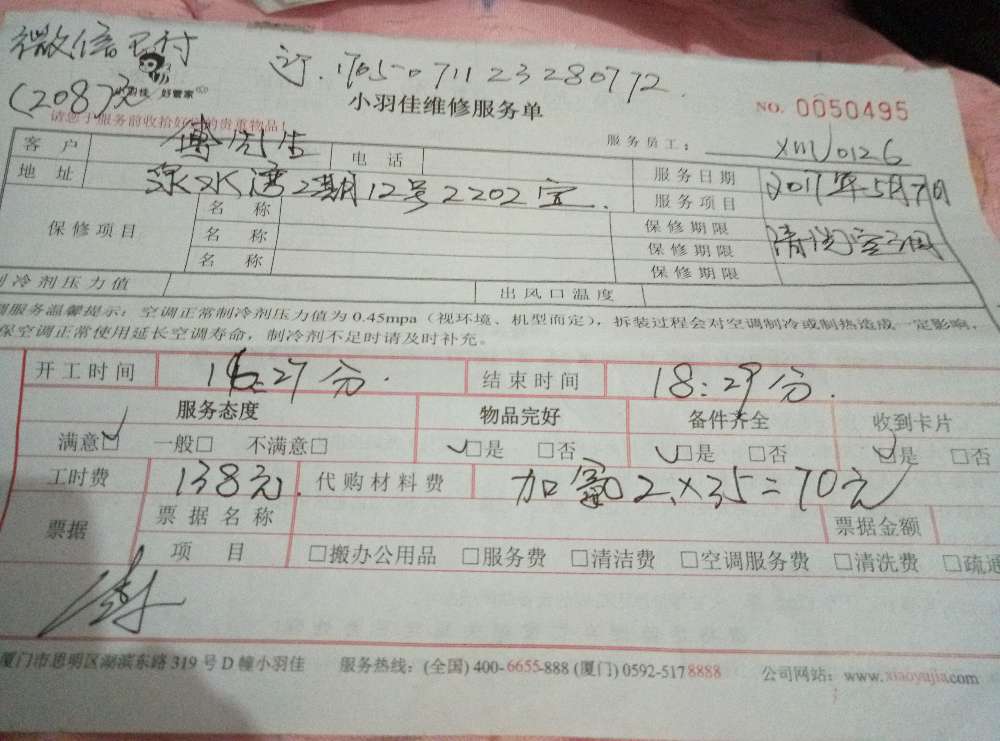 微信已付
订.1705-071123280772.
(208)元
小羽佳 好管家
小羽佳维修服务单
NO. 0050495
服务前收拾好 的贵重物品!
服务员工: XMU0126
客户 傅先生 电话 服务日期 2017年5月7日
地址 深水湾2期12号2202室. 服务项目 清洗空调
保修项目 名称 保修期限
名称 保修期限
名称 保修期限
制冷剂压力值 出风口温度
调服务温馨提示:空调正常制冷剂压力值为0.45mpa(视环境、机型而定),拆装过程会对空调制冷或制热造成一定影响,
保空调正常使用延长空调寿命,制冷剂不足时请及时补充。
开工时间 16:27分. 结束时间 18:29分.
服务态度 物品完好 备件齐全 收到卡片
满意☑ 一般□ 不满意□ ☑是 □否 ☑是 □否 ☑是 □否
工时费 138元. 代购材料费 加氟2×35=70元
票据 票据名称 票据金额
项目 □搬办公用品 □服务费 □清洁费 □空调服务费 □清洗费 □疏通
傅
厦门市思明区湖滨东路319号D幢小羽佳 服务热线:(全国)400-6655-888(厦门)0592-5178888 公司网站:www.xiaoyujia.com